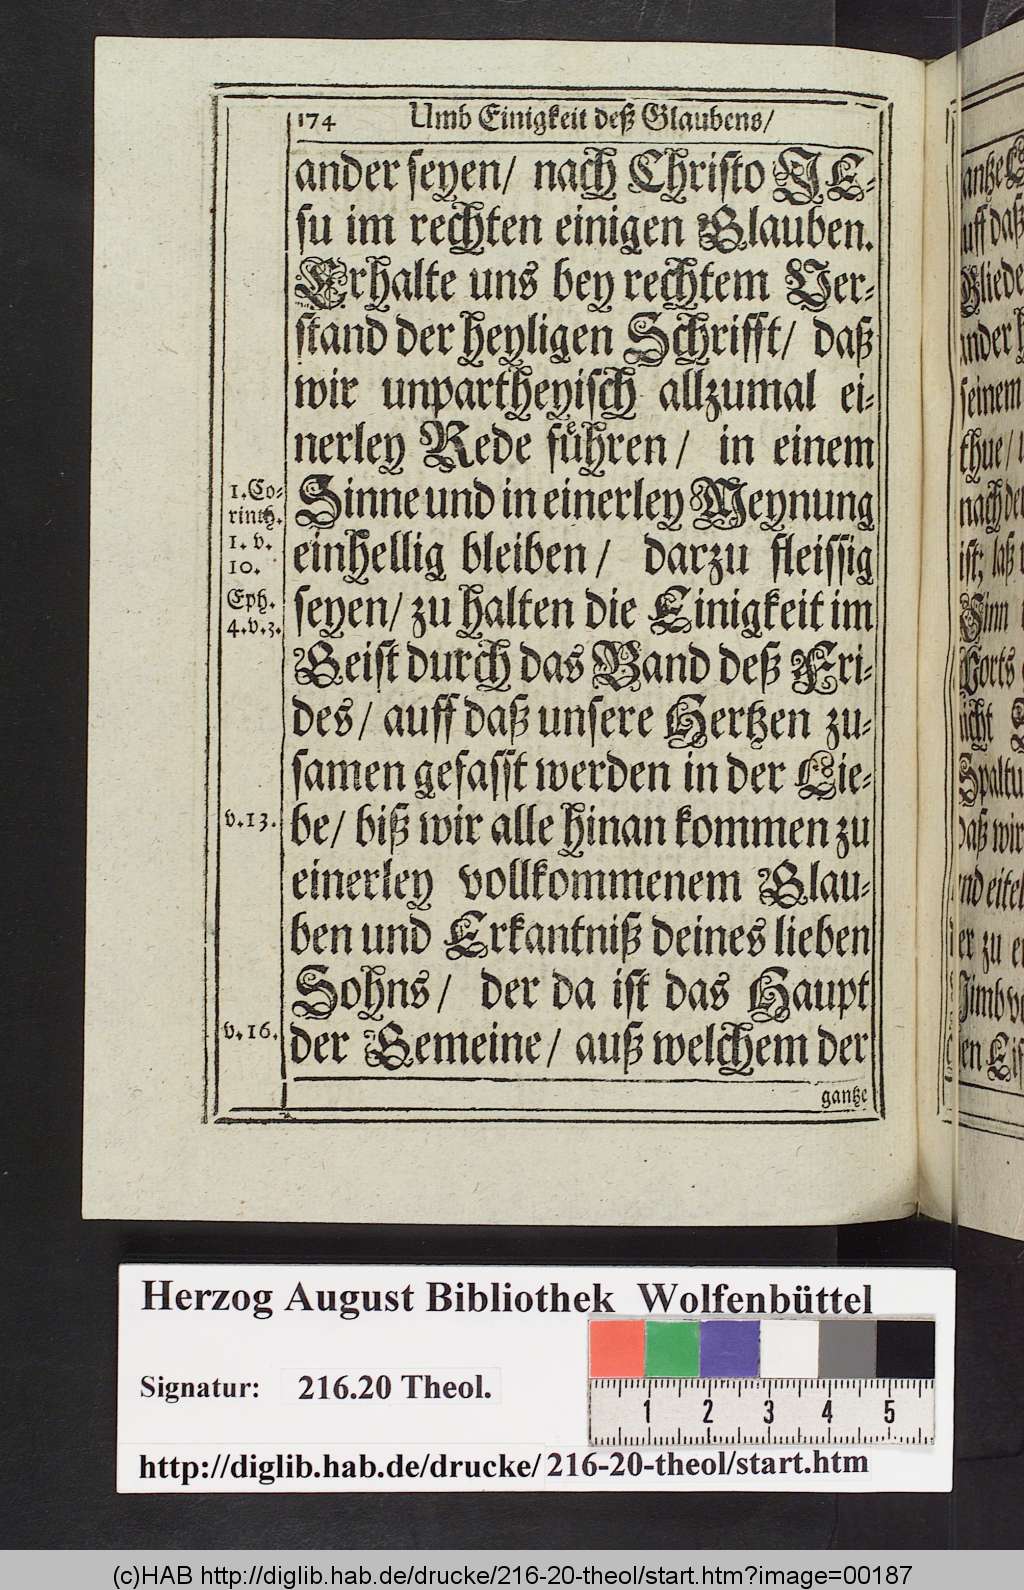 174 Umb Einigkeit deß Glaubens/
ander seyen/ nach Christo JE-
su im rechten einigen Glauben.
Erhalte uns bey rechtem Ver-
stand der heyligen Schrifft/ daß
wir unpartheyisch allzumal ei-
nerley Rede fuͤhren/ in einem
Sinne und in einerley Meynung
einhellig bleiben/ darzu fleissig
seyen/ zu halten die Einigkeit im
Geist durch das Band deß Fri-
des/ auff daß unsere Hertzen zu-
samen gefasst werden in der Lie-
be/ biß wir alle hinan kommen zu
einerley vollkommenem Glau-
ben und Erkantniß deines lieben
Sohns/ der da ist das Haupt
der Gemeine/ auß welchem der
gantze
1. Co-
rinth.
1. v.
10.
Eph.
4. v. 3.
v. 13.
v. 16.
antze
uff daß
Gliede
ander h
seinem
thue/
nach de
ist; laß
Sinn
Worts
nicht
Spaltu
daß wir
nd eitel
er zu
Umb v
Herzog August Bibliothek Wolfenbüttel
Signatur: 216.20 Theol.
1 2 3 4 5
http://diglib.hab.de/drucke/216-20-theol/start.htm
(c)HAB http://diglib.hab.de/drucke/216-20-theol/start.htm?image=00187